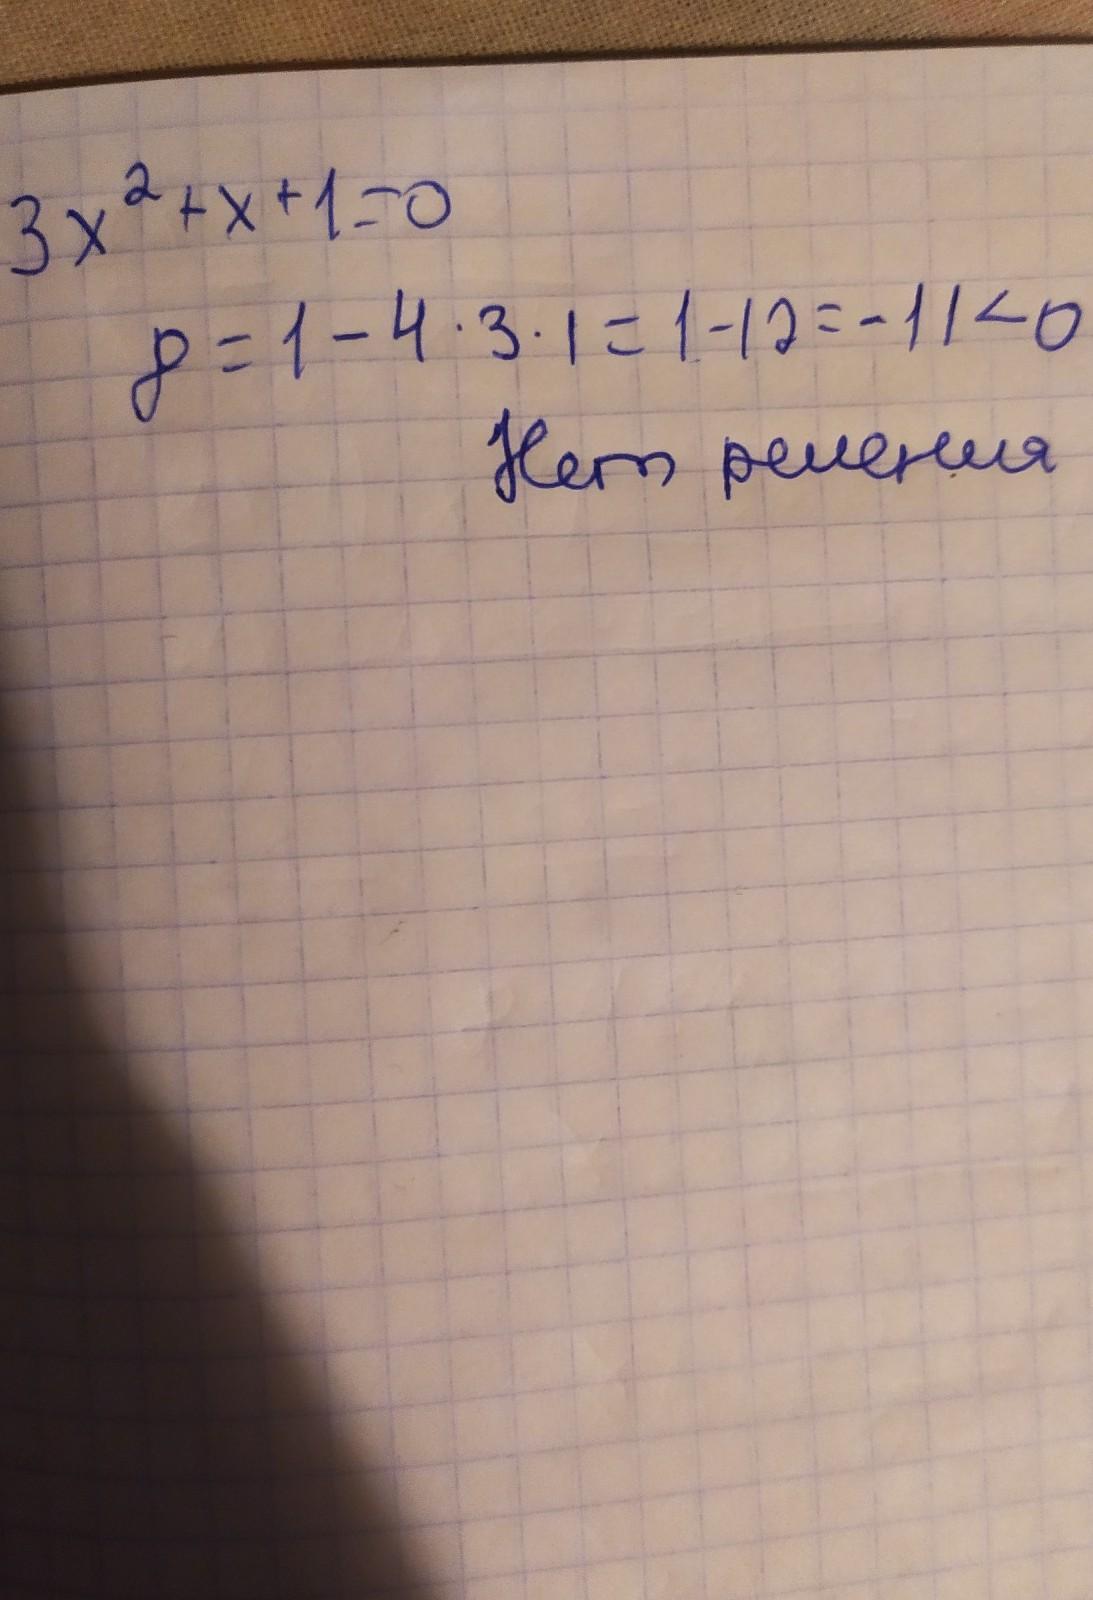 3x² + x + 1 = 0
D = 1 - 4 · 3 · 1 = 1 - 12 = - 11 < 0
Нет решения